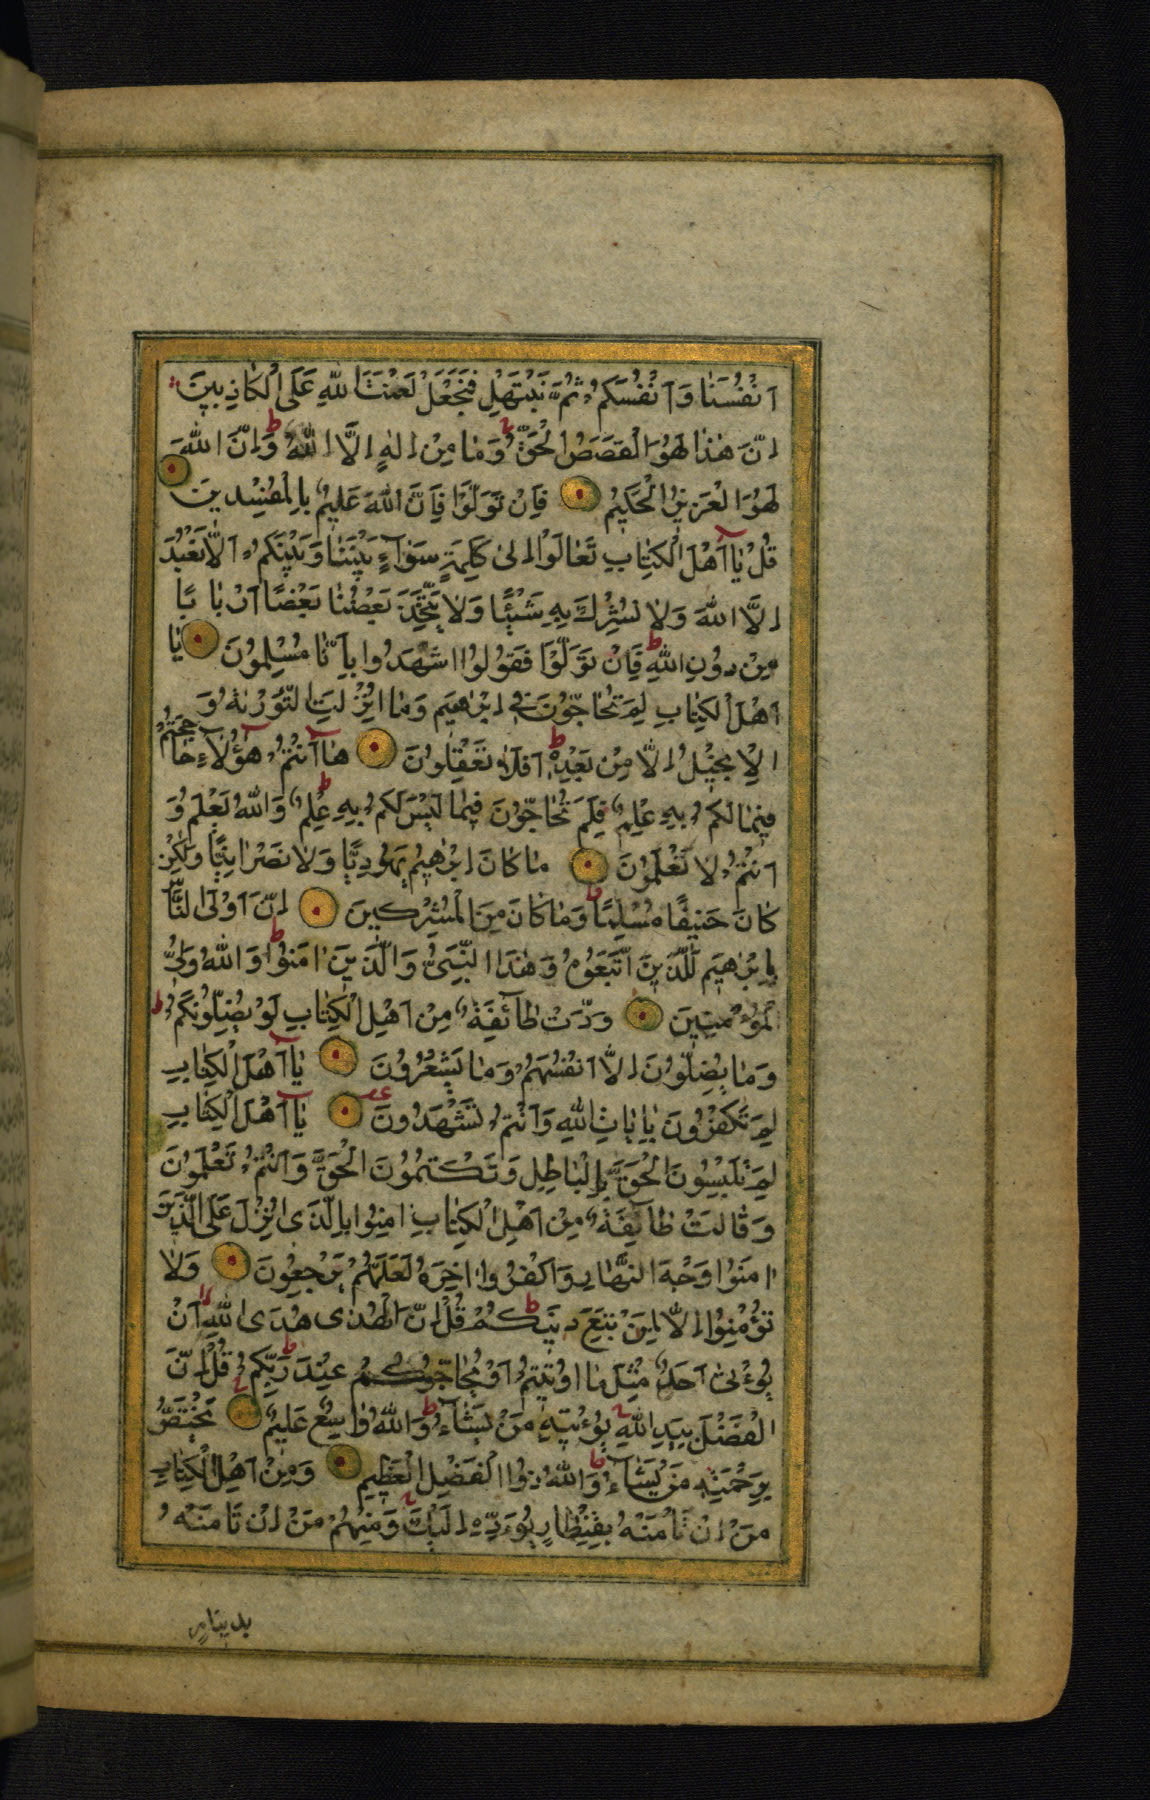 اَنْفُسَنَا وَاَنْفُسَكُمْ ثُمَّ نَبْتَهِلْ فَنَجْعَلْ لَعْنَتَ اللّٰهِ عَلَى الْكَاذِبِينَ
اِنَّ هٰذَا لَهُوَ الْقَصَصُ الْحَقُّ وَمَا مِنْ اِلٰهٍ اِلَّا اللّٰهُ وَاِنَّ اللّٰهَ
لَهُوَ الْعَزِيزُ الْحَكِيمُ فَاِنْ تَوَلَّوْا فَاِنَّ اللّٰهَ عَلِيمٌ بِالْمُفْسِدِينَ
قُلْ يَا اَهْلَ الْكِتَابِ تَعَالَوْا اِلىٰ كَلِمَةٍ سَوَاۤءٍ بَيْنَنَا وَبَيْنَكُمْ اَلَّا نَعْبُدَ
اِلَّا اللّٰهَ وَلَا نُشْرِكَ بِهِ شَيْئًا وَلَا يَتَّخِذَ بَعْضُنَا بَعْضًا اَرْبَابًا
مِنْ دُونِ اللّٰهِ فَاِنْ تَوَلَّوْا فَقُولُوا اشْهَدُوا بِاَنَّا مُسْلِمُونَ يَا
اَهْلَ الْكِتَابِ لِمَ تُحَاجُّونَ فِي اِبْرٰهِيمَ وَمَا اُنْزِلَتِ التَّوْرٰيةُ وَ
الْاِنْجِيلُ اِلَّا مِنْ بَعْدِهِ اَفَلَا تَعْقِلُونَ هَا اَنْتُمْ هٰۤؤُلَاۤءِ حَاجَجْتُمْ
فِيمَا لَكُمْ بِهِ عِلْمٌ فَلِمَ تُحَاجُّونَ فِيمَا لَيْسَ لَكُمْ بِهِ عِلْمٌ وَاللّٰهُ يَعْلَمُ وَ
اَنْتُمْ لَا تَعْلَمُونَ مَا كَانَ اِبْرٰهِيمُ يَهُودِيًّا وَلَا نَصْرَانِيًّا وَلٰكِنْ
كَانَ حَنِيفًا مُسْلِمًا وَمَا كَانَ مِنَ الْمُشْرِكِينَ اِنَّ اَوْلَى النَّا
بِاِبْرٰهِيمَ لَلَّذِينَ اتَّبَعُوهُ وَهٰذَا النَّبِيُّ وَالَّذِينَ اٰمَنُوا وَاللّٰهُ وَلِيُّ
الْمُؤْمِنِينَ وَدَّتْ طَاۤئِفَةٌ مِنْ اَهْلِ الْكِتَابِ لَوْ يُضِلُّونَكُمْ
وَمَا يُضِلُّونَ اِلَّا اَنْفُسَهُمْ وَمَا يَشْعُرُونَ يَا اَهْلَ الْكِتَابِ
لِمَ تَكْفُرُونَ بِاٰيَاتِ اللّٰهِ وَاَنْتُمْ تَشْهَدُونَ يَا اَهْلَ الْكِتَابِ
لِمَ تَلْبِسُونَ الْحَقَّ بِالْبَاطِلِ وَتَكْتُمُونَ الْحَقَّ وَاَنْتُمْ تَعْلَمُونَ
وَقَالَتْ طَاۤئِفَةٌ مِنْ اَهْلِ الْكِتَابِ اٰمِنُوا بِالَّذِي اُنْزِلَ عَلَى الَّذِينَ
اٰمَنُوا وَجْهَ النَّهَارِ وَاكْفُرُوا اٰخِرَهُ لَعَلَّهُمْ يَرْجِعُونَ وَلَا
تُؤْمِنُوا اِلَّا لِمَنْ تَبِعَ دِينَكُمْ قُلْ اِنَّ الْهُدٰى هُدَى اللّٰهِ اَنْ
يُؤْتىٰ اَحَدٌ مِثْلَ مَا اُوتِيتُمْ اَوْ يُحَاجُّوكُمْ عِنْدَ رَبِّكُمْ قُلْ اِنَّ
الْفَضْلَ بِيَدِ اللّٰهِ يُؤْتِيهِ مَنْ يَشَاۤءُ وَاللّٰهُ وَاسِعٌ عَلِيمٌ يَخْتَصُّ
بِرَحْمَتِهِ مَنْ يَشَاۤءُ وَاللّٰهُ ذُوا الْفَضْلِ الْعَظِيمِ وَمِنْ اَهْلِ الْكِتَابِ
مَنْ اِنْ تَاْمَنْهُ بِقِنْطَارٍ يُؤَدِّهِ اِلَيْكَ وَمِنْهُمْ مَنْ اِنْ تَاْمَنْهُ
بدينار